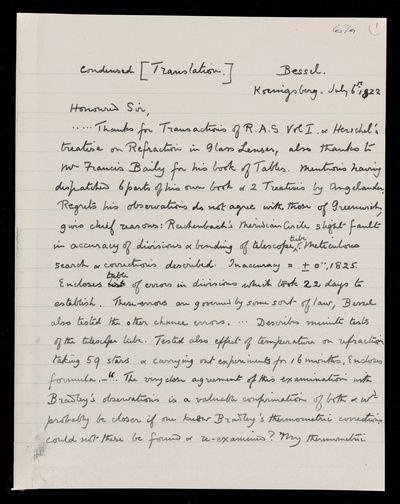 condensed [Translation.] Bessel.
Koenigsberg. July 6th, 1822
Honoured Sir,
..... Thanks for Transactions of R.A.S Vol I. & Herschel's
treatise on Refraction in Glass Lenses, also thanks to
Mr Francis Baily for his book of Tables. Mentions having
despatched 6 parts of his own book & 2 Treatises by Angelander.
Regrets his observations do not agree with those of Greenwich,
gives chief reasons: Reichenbach's Meridian Circle slight fault
in accuracy of divisions & bending of telescope tube. Meticulous
search & corrections described. Inaccuracy = ± 0",1825.
Encloses table of errors in divisions which took 22 days to
establish. These errors are governed by some sort of law, Bessel
also tested the other chance errors. ... Describes minute tests
of the telescope tube. Tested also effect of temperature on refraction
taking 59 stars & carrying out experiments for 16 months. Encloses
formula. — "... The very close agreement of this examination with
Bradley's observations is a valuable confirmation of both & wd
probably be closer if one knew Bradley's thermometric corrections
could not these be found & re-examined? My thermometric